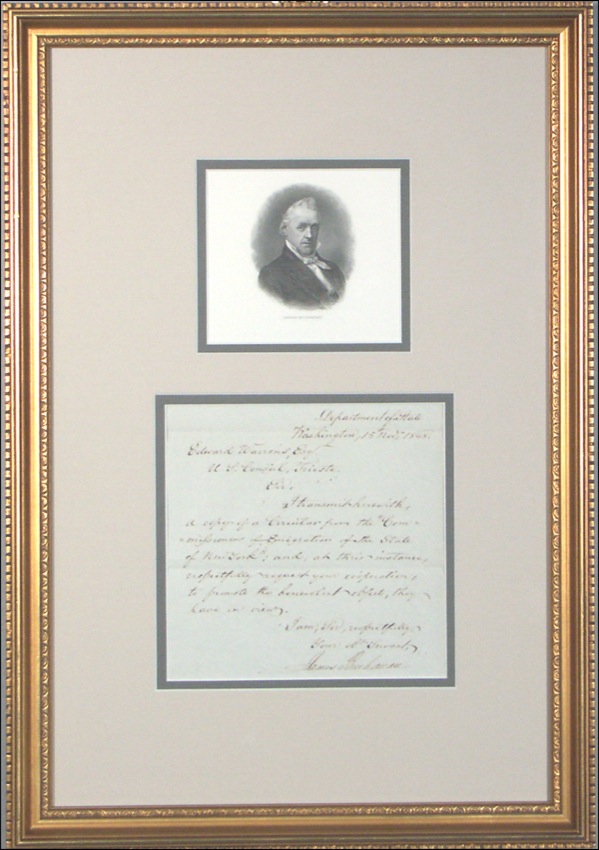 JAMES BUCHANAN
Department of State
Washington, 15th Novr, 184
Edward Warrens, Esqr.
U. S. Consul, Trieste.
Sir:
I transmit herewith,
a copy of a Circular from the "Com-
missioners of Emigration of the State
of New York"; and, at their instance,
respectfully request your coöperation,
to promote the benevolent object, they
have in view.
I am, Sir, respectfully,
Your Obt Servant,
James Buchanan